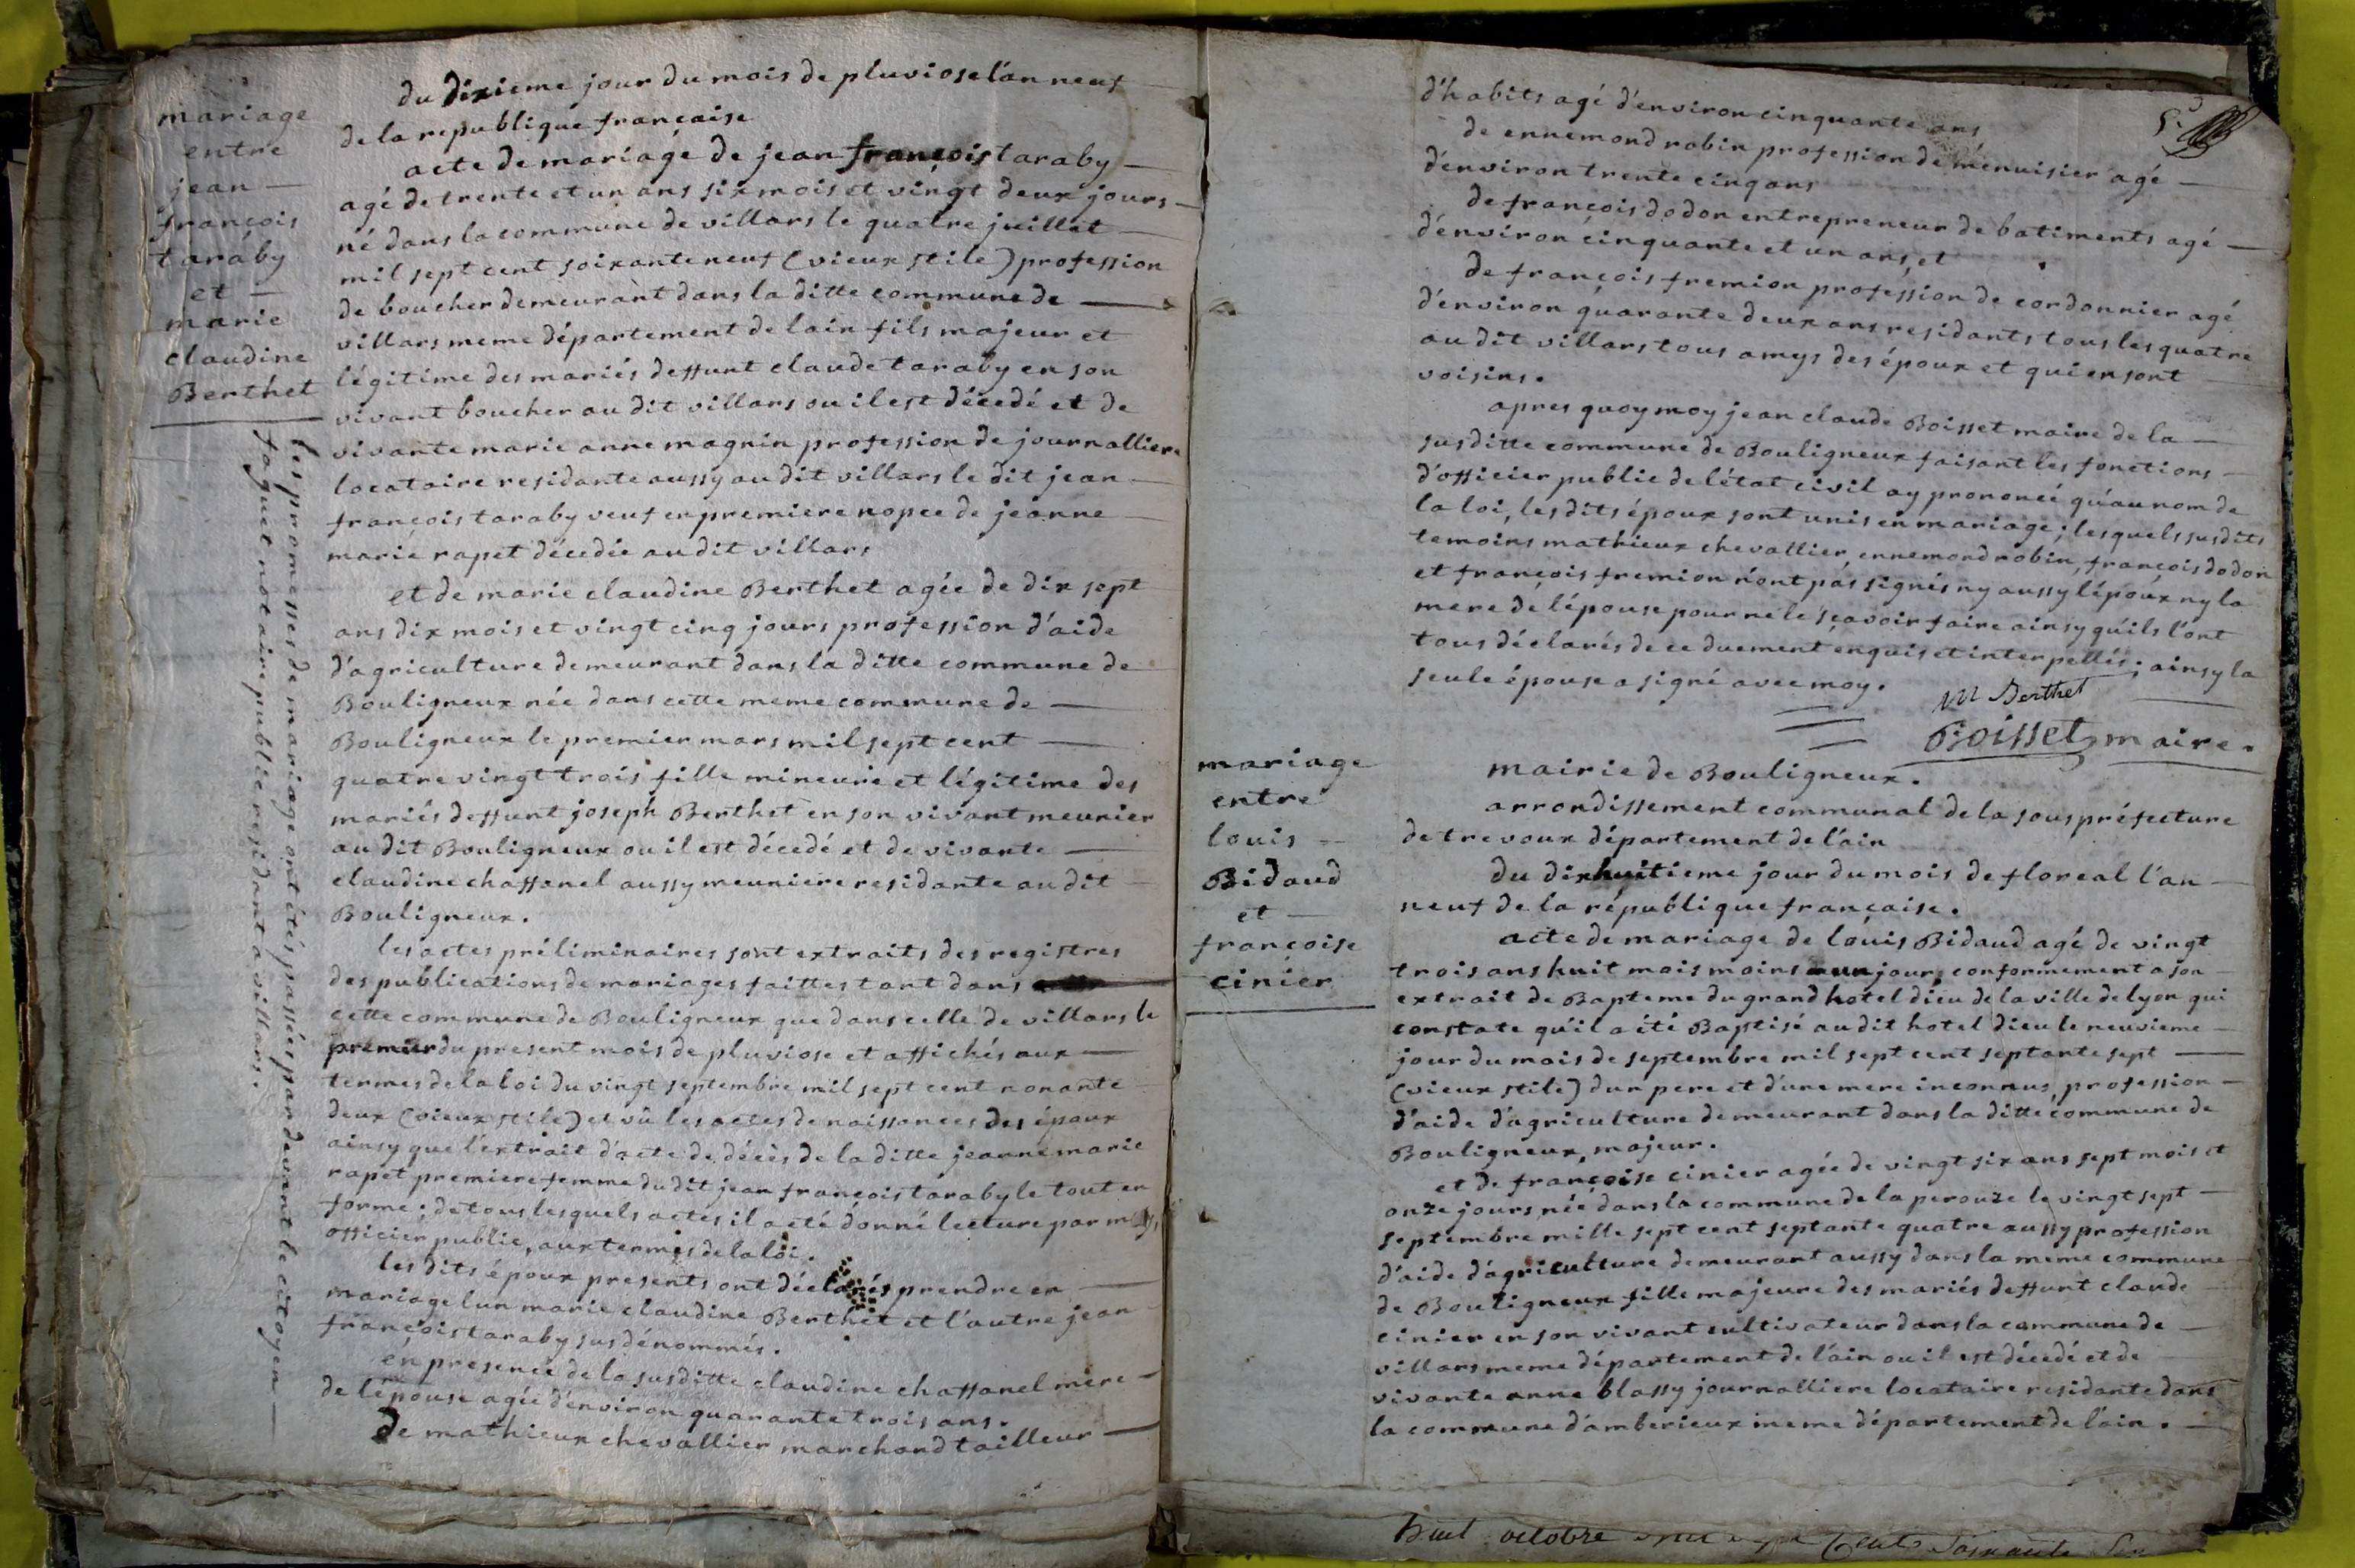 mariage
entre
jean
françois
taraby
et
marie
claudine
Berthet
les promesses de mariage ont étés passées par devant le citoyen
foquet notaire public residant a villars.
du dixieme jour du mois de pluviose l'an neuf
de la republique française
acte de mariage de jean françois taraby
agé de trente et un ans six mois et vingt deux jours
né dans la commune de villars le quatre juillet
mil sept cent soixante neuf (vieux stile) profession
de boucher demeurant dans la ditte commune de
villars meme département de lain fils majeur et
légitime des mariés deffunt claude taraby en son
vivant boucher au dit villars ou il est décedé et de
vivante marie anne magnin profession de journalliere
locataire residante aussy au dit villars le dit jean
françois taraby veuf en premiere nopce de jeanne
marie rapet décedée au dit villars
et de marie claudine Berthet agée de dix sept
ans dix mois et vingt cinq jours profession d'aide
d'agriculture demeurant dans la ditte commune de
Bouligneux née dans cette meme commune de
Bouligneux le premier mars mil sept cent
quatre vingt trois fille mineure et légitime des
mariés deffunt joseph Berthet en son vivant meunier
au dit Bouligneux ou il est décedé et de vivante
claudine chaffanel aussy meuniere residante au dit
Bouligneux.
les actes préliminaires sont extraits des registres
des publications de mariages faittes tant dans
cette commune de Bouligneux que dans celle de villars le
premier du present mois de pluviose et affichés aux
termes de la loi du vingt septembre mil sept cent nonante
deux (vieux stile) et vû les actes de naissances des époux
ainsy que l'extrait d'acte de décès de la ditte jeanne marie
rapet premiere femme du dit jean françois taraby le tout en
forme; de tous lesquels actes il a eté donné lecture par moy
officier public, aux termes de la loi.
les dits époux presents ont déclarés prendre en
mariage l'un marie claudine Berthet et l'autre jean
françois taraby sus dénommés.
en presence de la susditte claudine chaffanel mere
de l'épouse agée d'environ quarante trois ans.
de mathieux chevallier marchand tailleur
d'habits agé d'environ cinquante ans
de ennemond robin profession de menuisier agé
d'environ trente cinq ans
de françois dodon entrepreneur de batiments agé
d'environ cinquante et un ans, et
de françois fremion profession de cordonnier agé
d'environ quarante deux ans residants tous les quatre
au dit villars tous amys des époux et qui en sont
voisins.
apres quoy moy jean claude Boisset maire de la
susditte commune de Bouligneux faisant les fonctions
d'officier public de l'état civil ay prononcé qu'au nom de
la loi, les dits époux sont unis en mariage; lesquels susdits
temoins mathieux chevallier, ennemond robin, françois dodon
et françois fremion n'ont pas signés ny aussy l'époux ny la
mere de l'épouse pour ne le sçavoir faire ainsy qu'ils l'ont
tous déclarés de ce duement enquis et interpellés; ainsy la
seule épouse a signé avec moy.
M Berthet
Boisset maire.
mariage
entre
louis
Bidaud
et
françoise
cinier
mairie de Bouligneux.
arrondissement communal de la sous préfecture
de trevoux département de l'ain
du dixhuitieme jour du mois de floreal l'an
neuf de la république française.
acte de mariage de louis Bidaud agé de vingt
trois ans huit mois moins un jour, conformement a son
extrait de Bapteme du grand hotel dieu de la ville de lyon qui
constate qu'il a été Baptisé au dit hotel dieu le neuvieme
jour du mois de septembre mil sept cent septante sept
(vieux stile) d'un pere et d'une mere inconnus, profession
d'aide d'agriculture demeurant dans la ditte commune de
Bouligneux, majeur.
et de françoise cinier agée de vingt six ans sept mois et
onze jours née dans la commune de la perouze le vingt sept
septembre mille sept cent septante quatre aussy profession
d'aide d'agriculture demeurant aussy dans la meme commune
de Bouligneux fille majeure des mariés deffunt claude
cinier en son vivant cultivateur dans la commune de
villars meme département de l'ain ou il est décedé et de
vivante anne blassy journalliere locataire residante dans
la commune d'amberieux meme département de l'ain.
huit octobre cent soixante